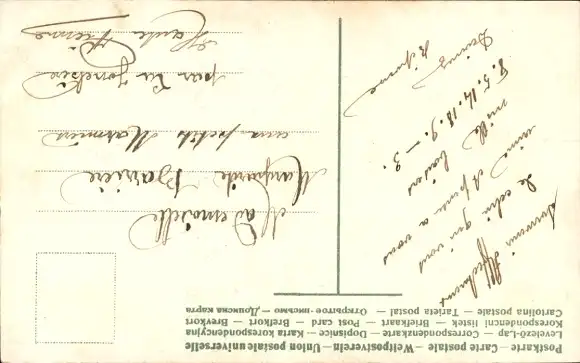 Postkarte — Carte postale — Weltpostverein — Union postale universelle
Levelező-Lap — Correspondenzkarte — Dopisnice — Karta korespondencyjna
Korespondencní lístek — Briefkaart — Post card — Brefkort — Brevkort
Cartolina postale — Tarjeta postal — Открытое письмо — Дописна карта
Souvenir
de celui qui vous
aime a vous
mille baisers
8.5.14.18.9. — 3.
Réponse
Mademoiselle
Marguerite Barrière
aux petits
par La Jonchère
Haute Vienne